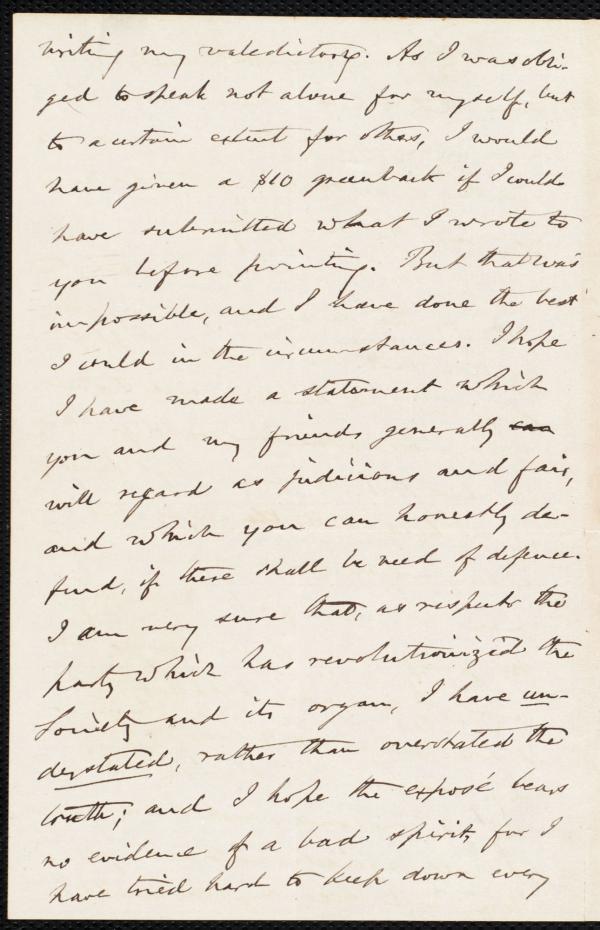 writing my valedictory. As I was obli-
ged to speak not alone for myself, but
to a certain extent for others, I would
have given a $10 greenback if I could
have submitted what I wrote to
you before printing. But that was
impossible, and I have done the best
I could in the circumstances. I hope
I have made a statement which
you and my friends generally
will regard as judicious and fair,
and which you can honestly de-
fend, if there shall be need of defence.
I am very sure that, as respects the
party which has revolutionized the
Society and its organ, I have un-
derstated, rather than overstated the
truth; and I hope the exposé bears
no evidence of a bad spirit, for I
have tried hard to keep down every